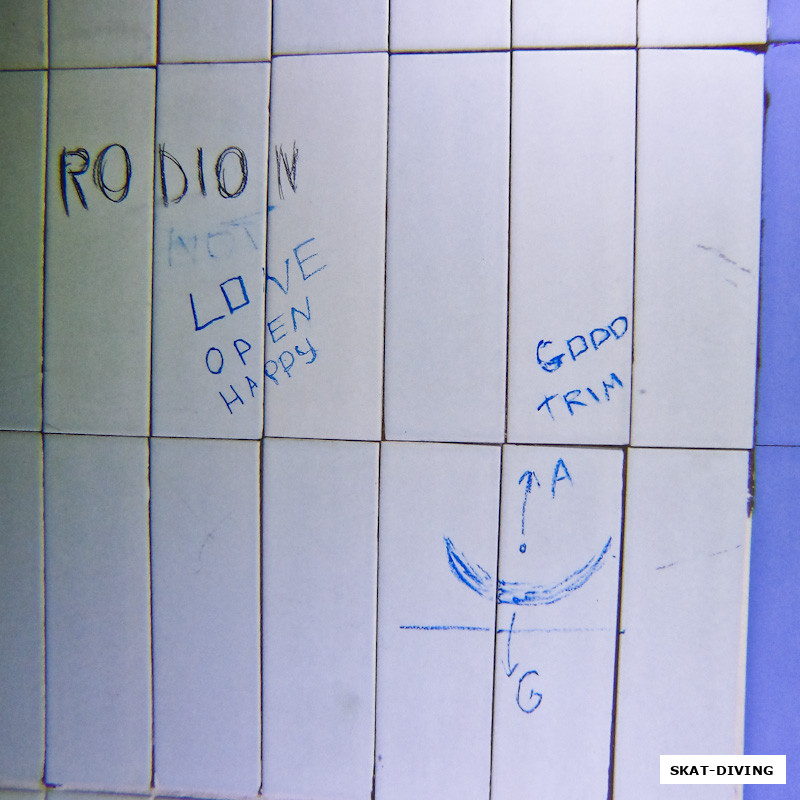 RODION
NOT
LOVE
OPEN
HAPPY
GOOD
TRIM
A
G
SKAT-DIVING